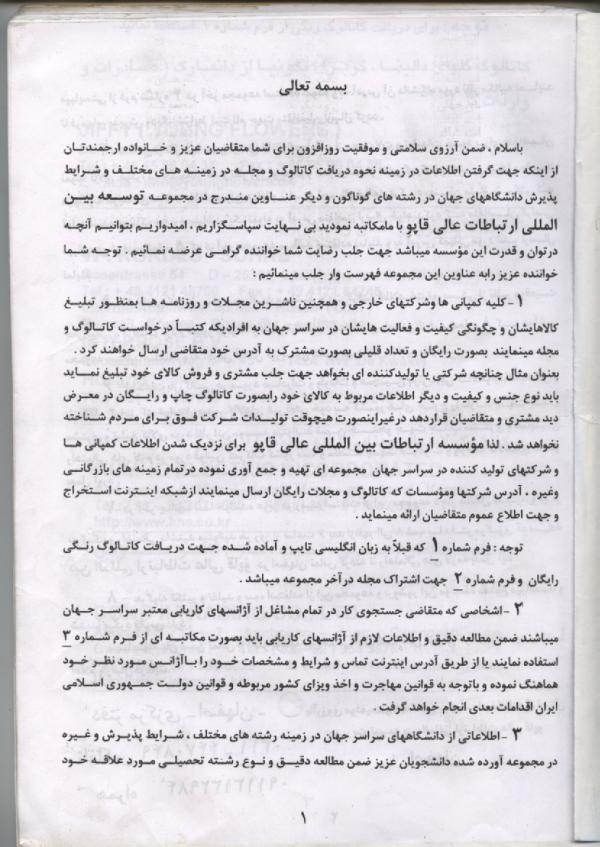 بسمه تعالی
باسلام ، ضمن آرزوی سلامتی و موفقیت روزافزون برای شما متقاضیان عزیز و خانواده ارجمندتان
از اینکه جهت گرفتن اطلاعات در زمینه نحوه دریافت کاتالوگ و مجله در زمینه های مختلف و شرایط
پذیرش دانشگاههای جهان در رشته های گوناگون و دیگر عناوین مندرج در مجموعه توسعه بین
المللی ارتباطات عالی قاپو با مامکاتبه نمودید بی نهایت سپاسگزاریم ، امیدواریم بتوانیم آنچه
درتوان و قدرت این مؤسسه میباشد جهت جلب رضایت شما خواننده گرامی عرضه نمائیم . توجه شما
خواننده عزیز رابه عناوین این مجموعه فهرست وار جلب مینمائیم :
۱ - کلیه کمپانی ها وشرکتهای خارجی و همچنین ناشرین مجلات و روزنامه ها بمنظور تبلیغ
کالاهایشان و چگونگی کیفیت و فعالیت هایشان در سراسر جهان به افرادیکه کتباً درخواست کاتالوگ و
مجله مینمایند بصورت رایگان و تعداد قلیلی بصورت مشترک به آدرس خود متقاضی ارسال خواهند کرد .
بعنوان مثال چنانچه شرکتی یا تولیدکننده ای بخواهد جهت جلب مشتری و فروش کالای خود تبلیغ نماید
باید نوع جنس و کیفیت و دیگر اطلاعات مربوط به کالای خود رابصورت کاتالوگ چاپ و رایگان در معرض
دید مشتری و متقاضیان قراردهد در غیراینصورت هیچوقت تولیدات شرکت فوق برای مردم شناخته
نخواهد شد . لذا مؤسسه ارتباطات بین المللی عالی قاپو برای نزدیک شدن اطلاعات کمپانی ها
و شرکتهای تولید کننده در سراسر جهان مجموعه ای تهیه و جمع آوری نموده درتمام زمینه های بازرگانی
وغیره ، آدرس شرکتها ومؤسسات که کاتالوگ و مجلات رایگان ارسال مینمایند ازشبکه اینترنت استخراج
و جهت اطلاع عموم متقاضیان ارائه مینماید .
توجه : فرم شماره 1 که قبلاً به زبان انگلیسی تایپ و آماده شده جهت دریافت کاتالوگ رنگی
رایگان و فرم شماره 2 جهت اشتراک مجله در آخر مجموعه میباشد .
۲ - اشخاصی که متقاضی جستجوی کار در تمام مشاغل از آژانسهای کاریابی معتبر سراسر جهان
میباشند ضمن مطالعه دقیق و اطلاعات لازم از آژانسهای کاریابی باید بصورت مکاتبه ای از فرم شماره 3
استفاده نمایند یا از طریق آدرس اینترنت تماس و شرایط و مشخصات خود را باآژانس مورد نظر خود
هماهنگ نموده و باتوجه به قوانین مهاجرت و اخذ ویزای کشور مربوطه و قوانین دولت جمهوری اسلامی
ایران اقدامات بعدی انجام خواهد گرفت .
۳ - اطلاعاتی از دانشگاههای سراسر جهان در زمینه رشته های مختلف ، شرایط پذیرش و غیره
در مجموعه آورده شده دانشجویان عزیز ضمن مطالعه دقیق و نوع رشته تحصیلی مورد علاقه خود
۱